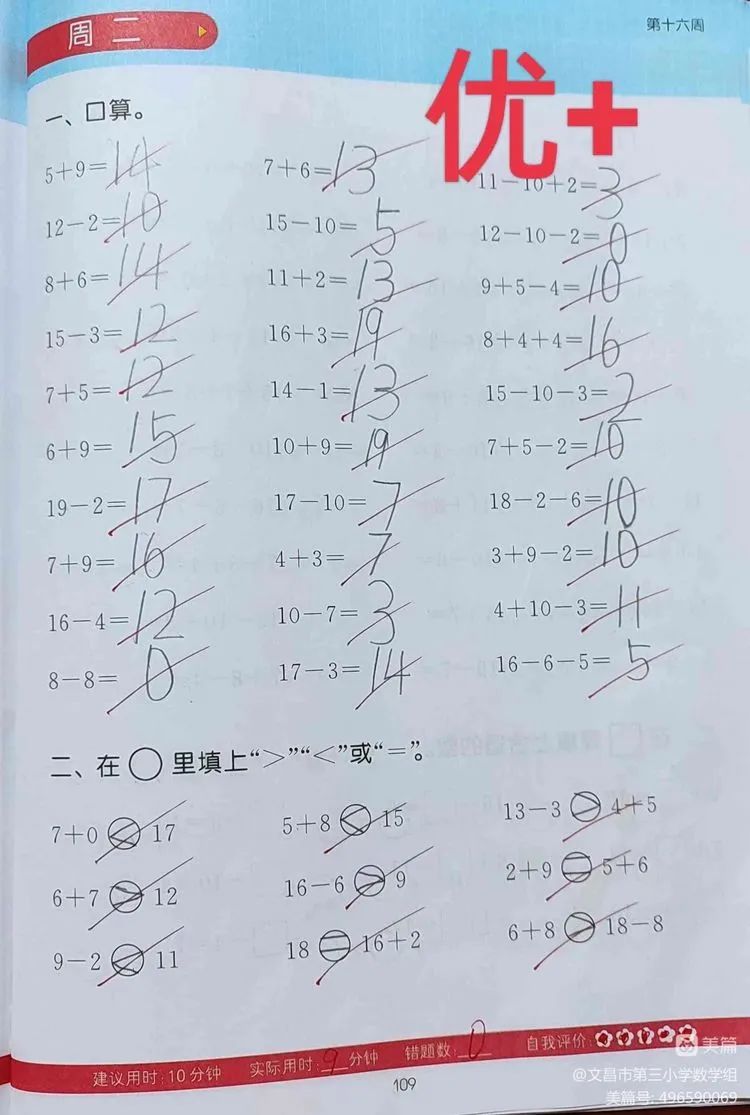 周二
第十六周
优+
一、口算。
5+9=14 7+6=13 11-10+2=3
12-2=10 15-10=5 12-10-2=0
8+6=14 11+2=13 9+5-4=10
15-3=12 16+3=19 8+4+4=16
7+5=12 14-1=13 15-10-3=2
6+9=15 10+9=19 7+5-2=10
19-2=17 17-10=7 18-2-6=10
7+9=16 4+3=7 3+9-2=10
16-4=12 10-7=3 4+10-3=11
8-8=0 17-3=14 16-6-5=5
二、在○里填上“>”“<”或“=”。
7+0<17 5+8<15 13-3>4+5
6+7>12 16-6>9 2+9=5+6
9-2<11 18=16+2 6+8>18-8
建议用时:10分钟 实际用时:9分钟 错题数:0 自我评价:
109
美篇
@文昌市第三小学数学组
美篇号: 496590069